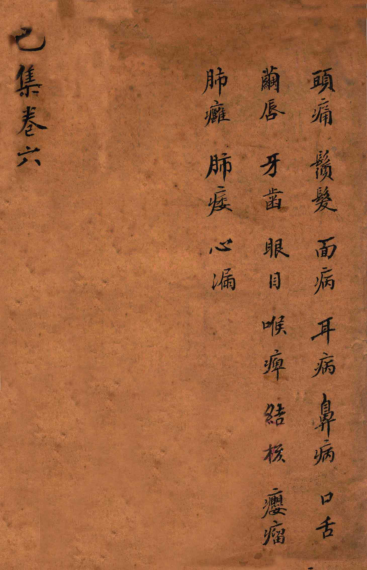 頭痛 鬚髮 面病 耳病 鼻病 口舌
繭唇 牙齒 眼目 喉痺 結核 癭瘤
肺癰 肺痿 心漏
已集卷六